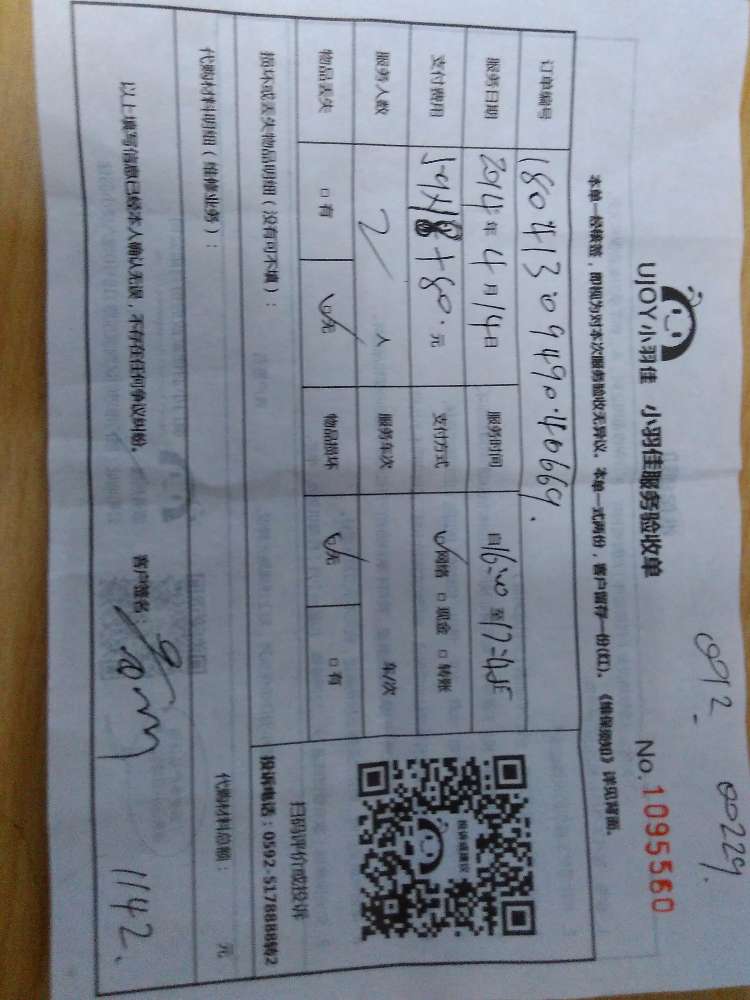 0912. 00229.
UJOY小羽佳 小羽佳服务验收单 No.1095560
本单一经签签，即视为对本次服务验收无异议。本单一式两份，客户留存一份(红)。《维保须知》详见背面。
订单编号 180413094904066 9.
服务日期 2014年4月14日 服务时间 自16:00至17:45
支付费用 +80.元 支付方式 ✓网络 □ 现金 □ 转账
服务人数 2 人 服务车次 车/次
物品丢失 □ 有 ☑无 物品损坏 ☑无 □ 有
扫码评价或投诉
投诉或建议
损坏或丢失物品明细（没有可不填）： 投诉电话：0592-5178888转2
代购材料明细（维修业务）： 代购材料总额： 元
以上填写信息已经本人确认无误，不存在任何争议纠纷。 客户签名：
1142.